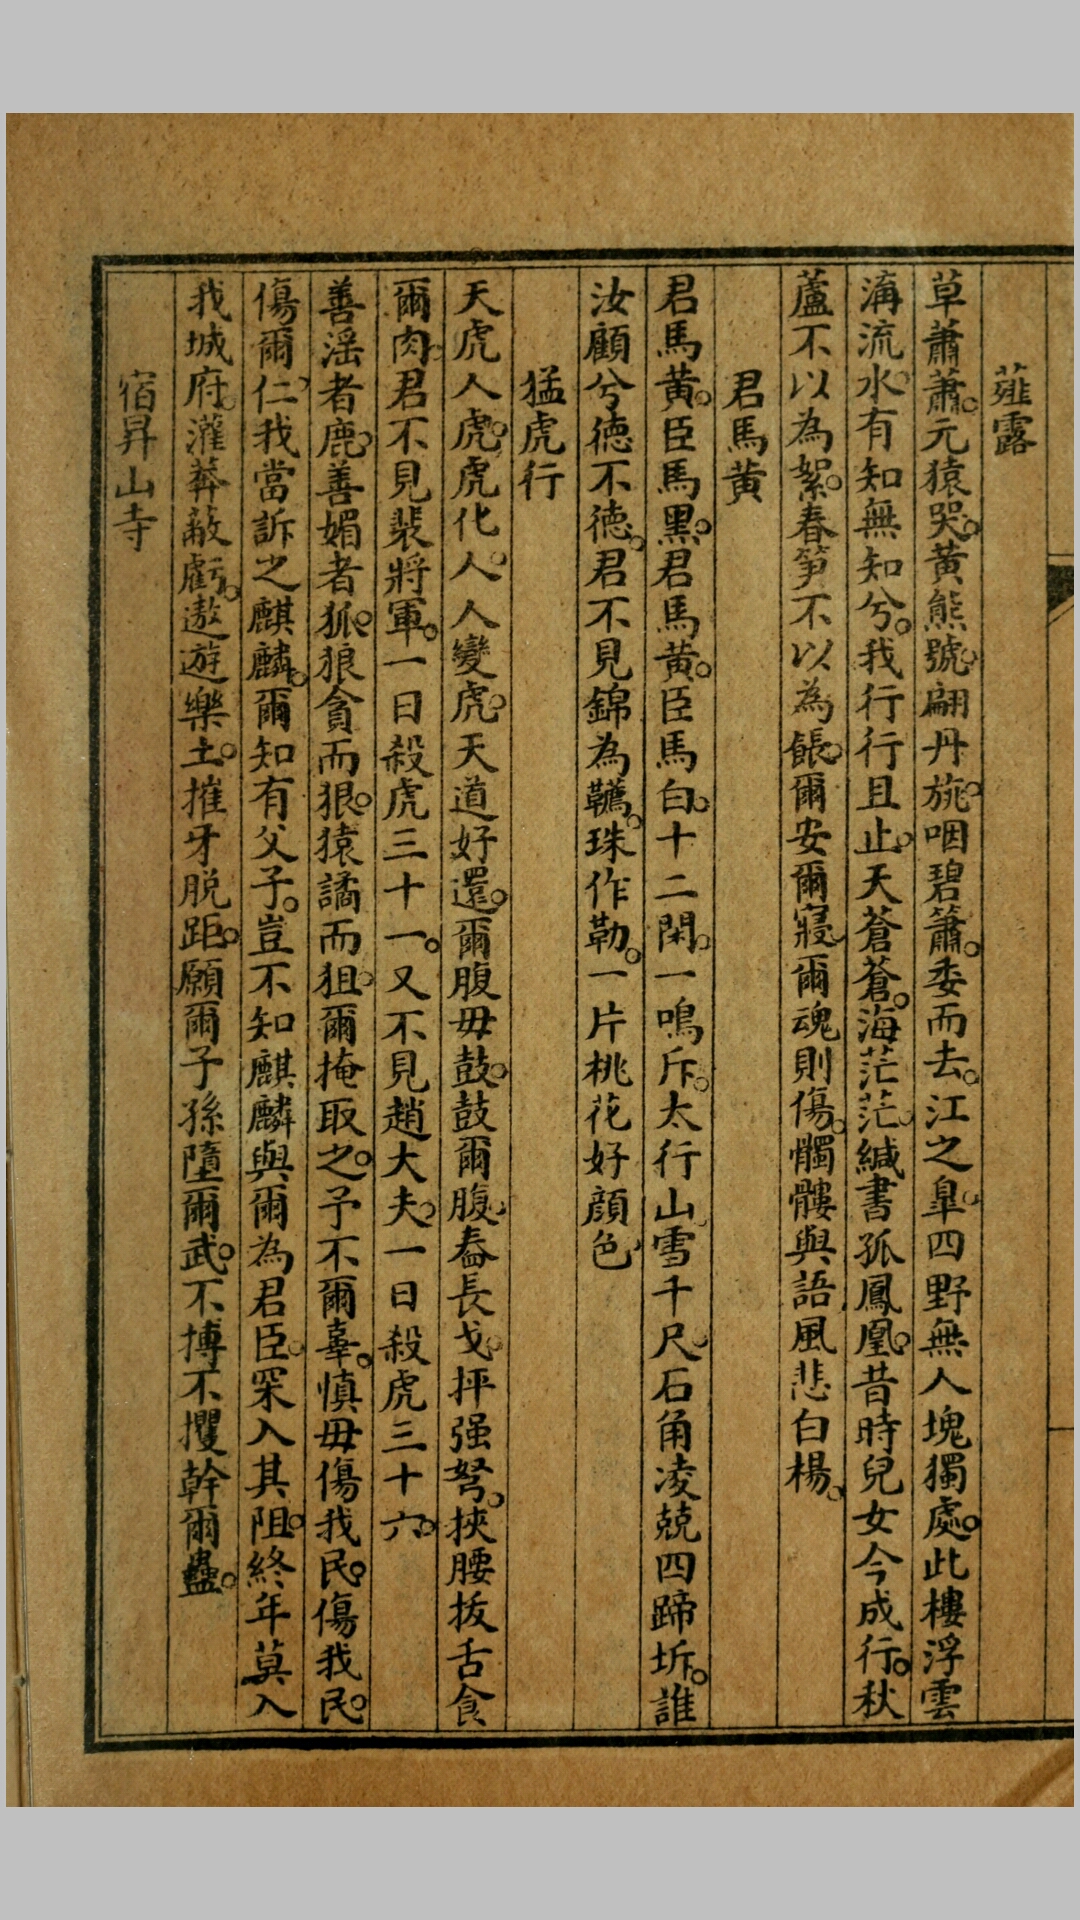 薤露
草蕭蕭。元猿哭。黃熊號。翩丹旐。咽碧簫。委而去。江之臯。四野無人塊獨處。此樓浮雲
溝流水。有知無知兮。我行行且止。天蒼蒼。海茫茫。緘書孤鳳凰。昔時兒女今成行。秋
蘆不以為絮。春笋不以為餦。爾安爾寢。爾魂則傷。髑髏與語風悲白楊。
君馬黃
君馬黃。臣馬黑。君馬黃。臣馬白。十二閑。一鳴斥。太行山雪千尺。石角凌兢四蹄坼。誰
汝顧兮德不德。君不見錦為韉。珠作勒。一片桃花好顔色。
猛虎行
天虎人虎。虎化人。人變虎。天道好還。爾腹毋鼓。鼓爾腹。舂長戈。抨强弩。挾腰拔舌食
爾肉。君不見裴將軍。一日殺虎三十一。又不見趙大夫。一日殺虎三十六。
善淫者鹿。善媚者狐。狼貪而狠。猿譎而狙。爾掩取之。予不爾辜。慎毋傷我民。傷我民。
傷爾仁。我當訴之麒麟。爾知有父子。豈不知麒麟與爾為君臣。罙入其阻。終年莫入
我城府。灌莽蔽虧。遨遊樂土。摧牙脱距。願爾子孫墮爾武。不搏不攫幹爾蠱。
宿昇山寺